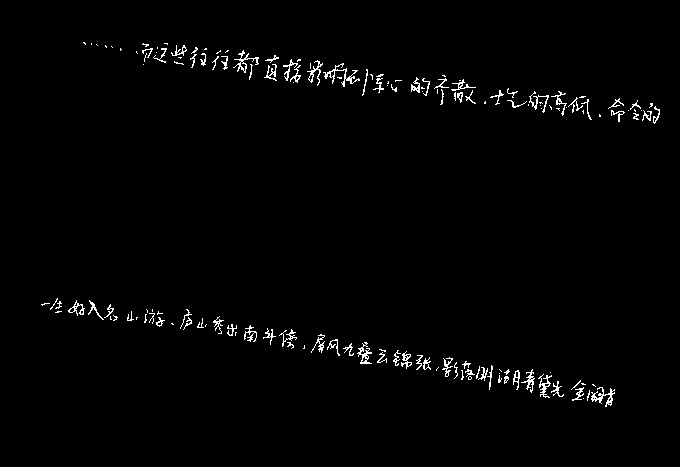 ……而这些往往都直接影响到军心的齐散、士气的高低、命令的
一生好入名山游、庐山秀出南斗傍，屏风九叠云锦张，影落明湖青黛光 金阙前